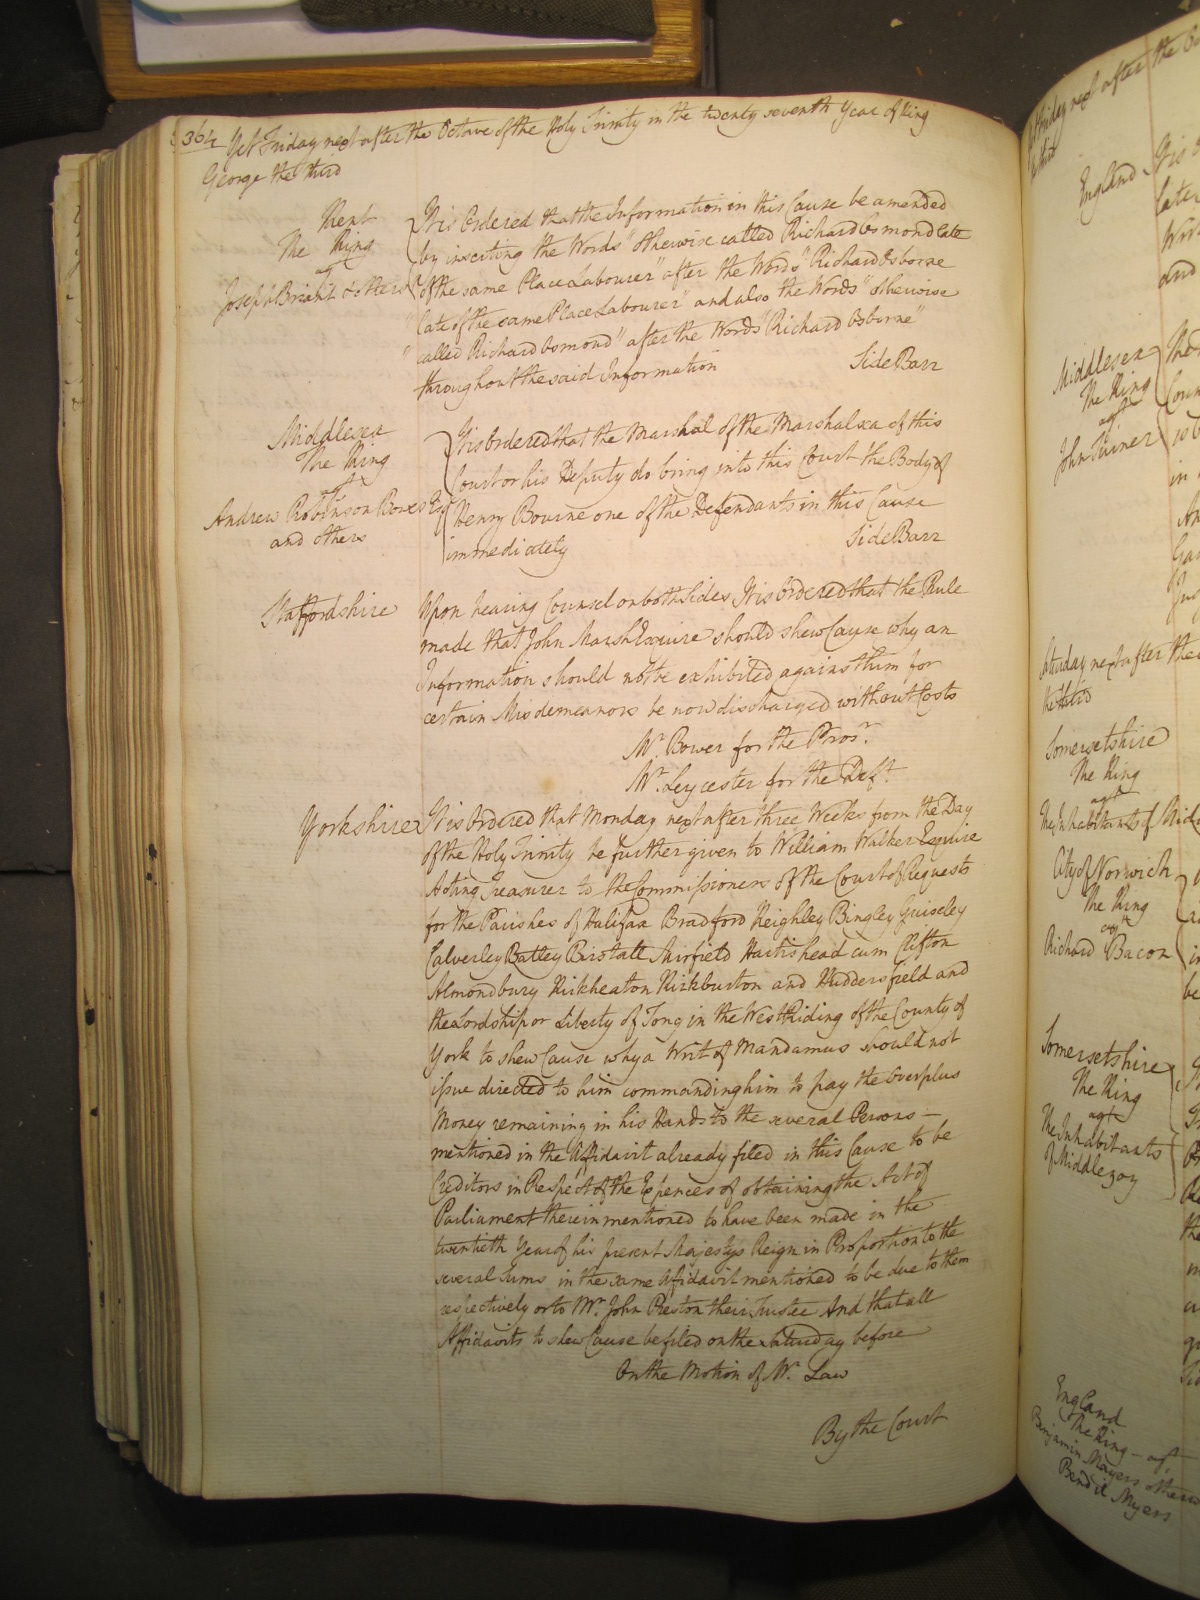 364 Yet Friday next after the Octave of the Holy Trinity in the twenty seventh Year of King
George the third
Kent
The King
agt
Joseph Briant & others
It is Ordered that the Information in this Cause be amended
by inserting the Words "otherwise called Richard Osmond late
"of the same Place Labourer" after the Words "Richard Osborne
"late of the same Place Labourer" and also the Words "otherwise
"called Richard Osmond" after the Words "Richard Osborne"
throughout the said Information Side Barr
Middlesex
The King
agt
Andrew Robinson Bowes Esqr
and others
It is Ordered that the Marshal of the Marshalsea of this
Court or his Deputy do bring into this Court the Body of
Henry Bourne one of the Defendants in this Cause
immediately Side Barr
Staffordshire
Upon hearing Counsel on both Sides It is Ordered that the Rule
made that John Marsh Esquire should shew Cause why an
Information should not be exhibited against him for
certain Misdemeanors be now discharged without Costs
Mr. Bower for the Prosr.
Mr. Leycester for the Deft.
Yorkshire
It is Ordered that Monday next after three Weeks from the Day
of the Holy Trinity be further given to William Walker Esquire
Acting Treasurer to the Commissioners of the Court of Requests
for the Parishes of Halifax Bradford Keighley Bingley Guiseley
Calverley Batley Birstall Mirfield Hartishead cum Clifton
Almondbury Kirkheaton Kirkburton and Huddersfield and
the Lordship or Liberty of Tong in the West Riding of the County of
York to shew Cause why a Writ of Mandamus should not
issue directed to him commanding him to pay the Overplus
Money remaining in his Hands to the several Persons —
mentioned in the Affidavit already filed in this Cause to be
Creditors in Respect of the Expences of obtaining the Act of
Parliament therein mentioned to have been made in the
twentieth Year of his present Majesty's Reign in Proportion to the
several Sums in the same Affidavit mentioned to be due to them
respectively or to Mr. John Preston their Trustee And that all
Affidavits to shew Cause be filed on the Saturday before
On the Motion of Mr. Law
By the Court
Friday next after the
the third
England It is
later
and
Middlesex
The King
agt
John Turner
The
Coun
is
in
Saturday next after the
the third
Somersetshire
The King
agst
The Inhabitants of
City of Norwich
The King
agt
Richard Bacon
in
be
Somersetshire
The King
agt
The Inhabitants
of Middlezoy
the
England
The King — agt
Benjamin Mayers otherwise
Bendix Myers